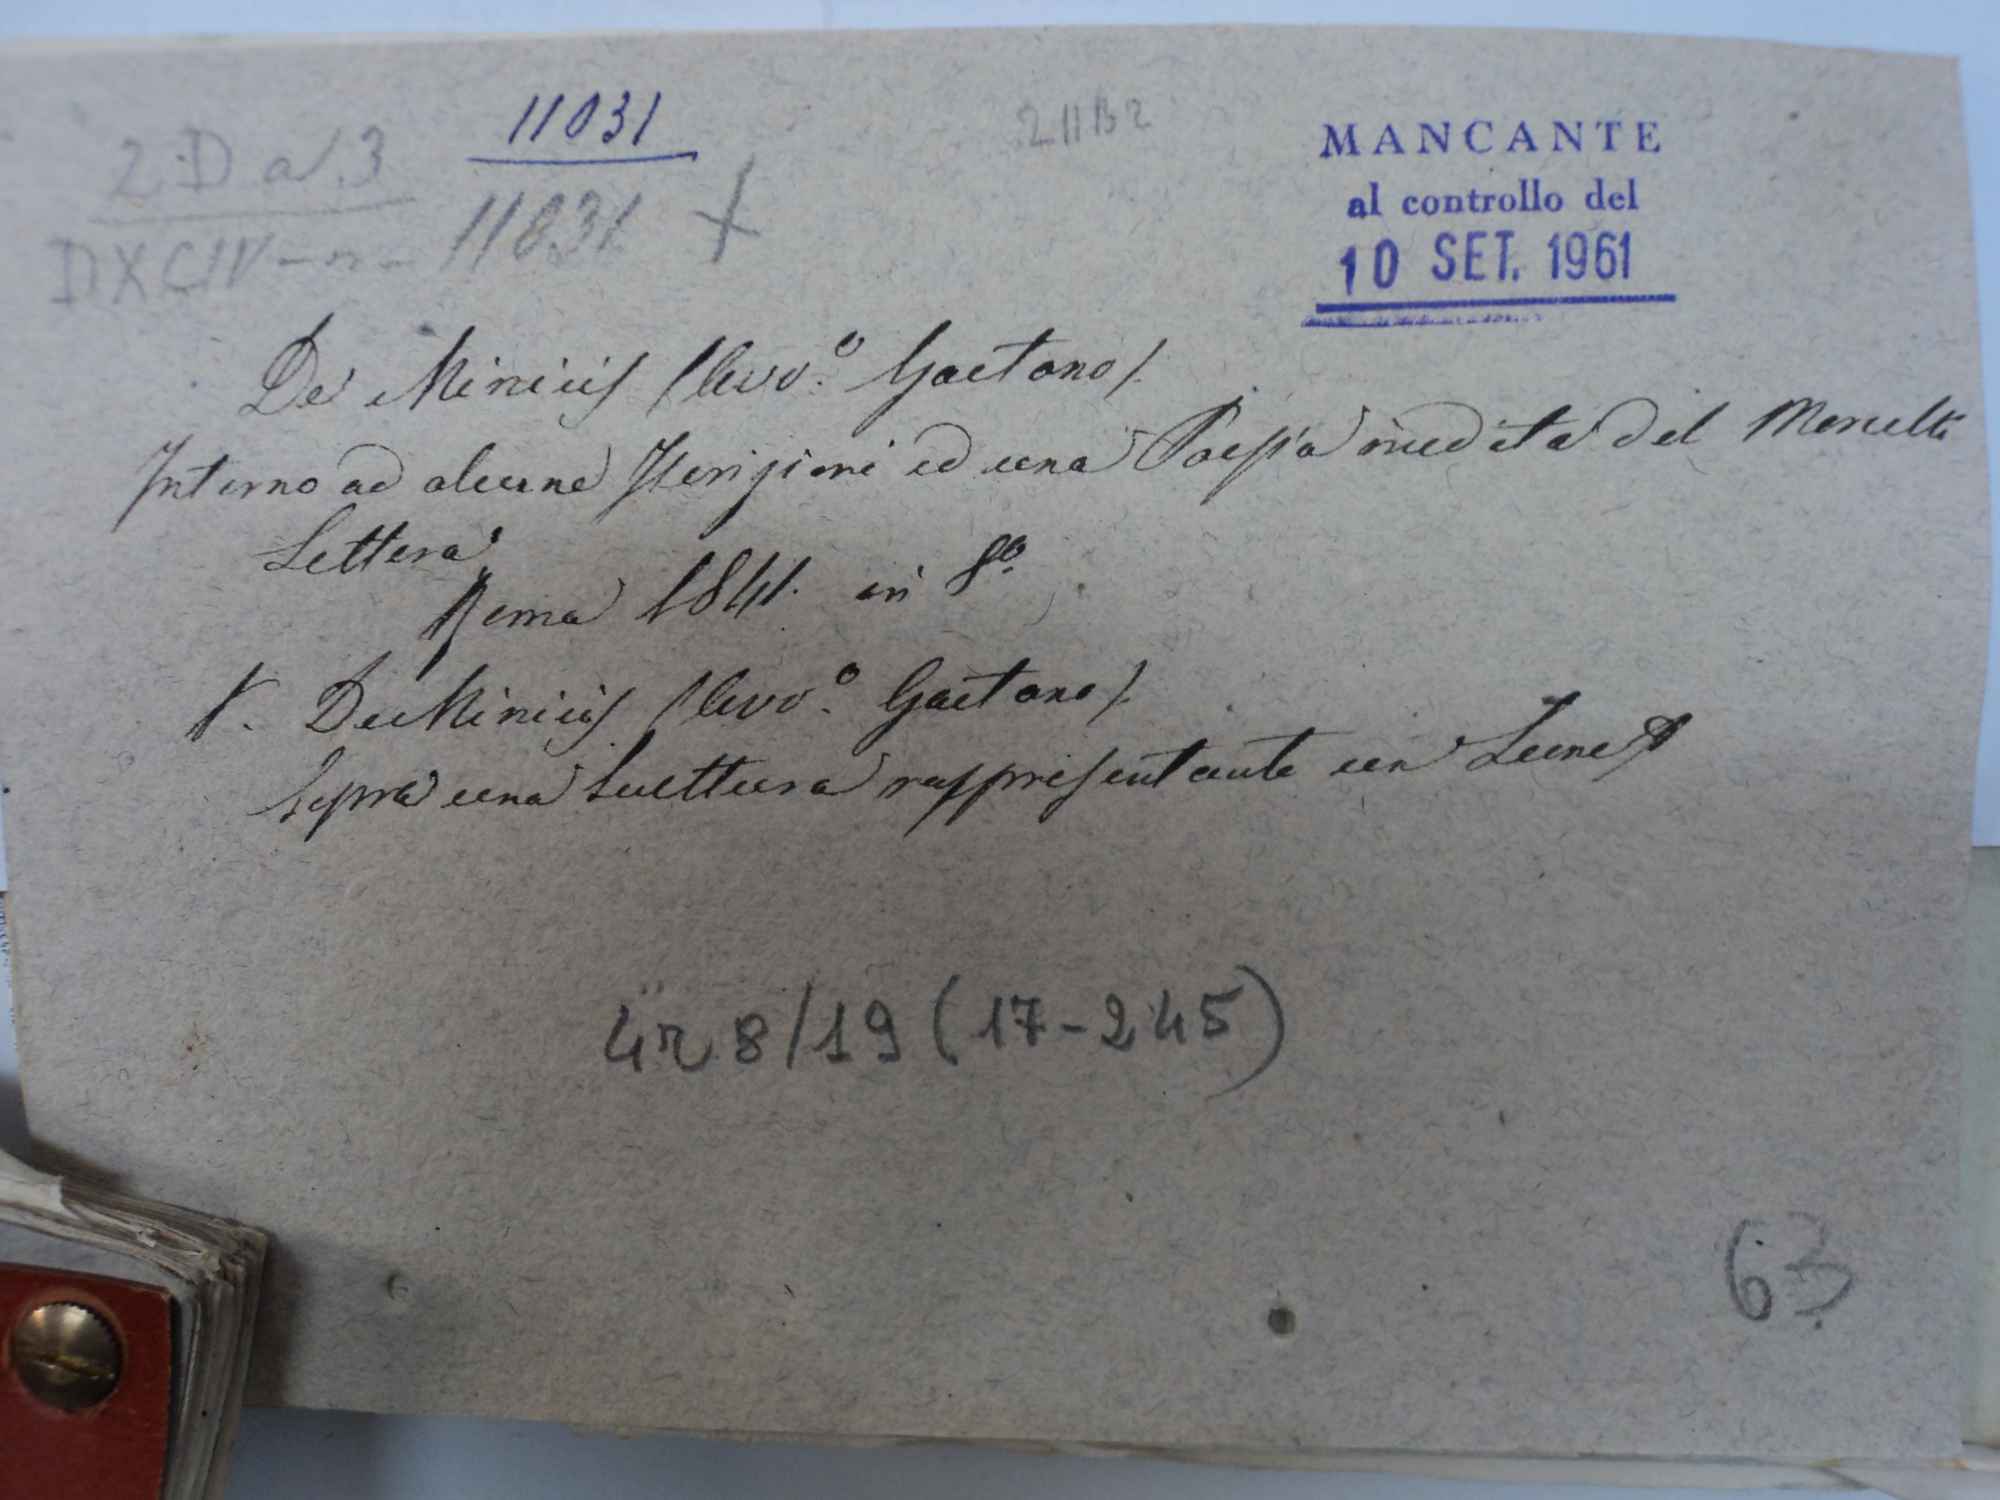 11031
2 11 B 2
MANCANTE
al controllo del
10 SET. 1961
2. D a 3
DXCIV - n - 11031 +
De Minicis (Avv.º Gaetano).
Intorno ad alcune Iscrizioni ed una Poesia inedita del Morcelli
Lettera,
Roma 1841. in 8º
V. De Minicis (Avv.º Gaetano).
Sopra una rappresentante un Leone
4 n 8/19 (17-245)
63